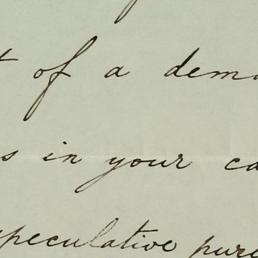 of a dem
s in your ca
speculative pure